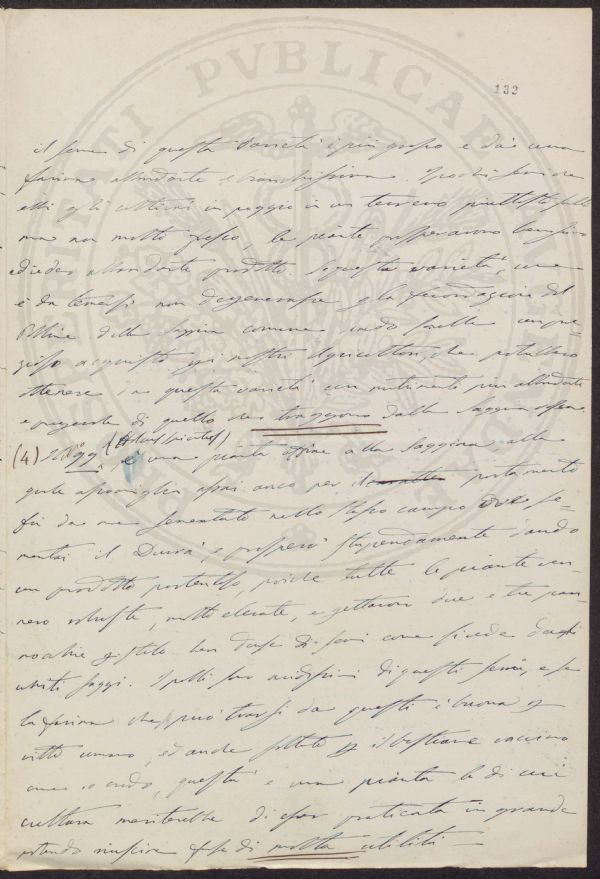 132
il seme di questa varietà è più grosso e dà una
farina abbondante e bianchissima.
in un terreno piuttosto
ma non molto fresco, le piante prosperarono benissimo
e diedero abbondante prodotto. questa varietà, come
è da temersi non degenerasse la fecondazione del
Polline della saggina comune
acquisto pei nostri Agricoltori, che potrebbero
ottenere da questa varietà un nutrimento più abbondante
e di quello che traggono dalla Saggina
(4) è una pianta affine alla Saggina alla
quale assomiglia assai anco per il portamento
fu da me sementato nello stesso campo ove se-
mentai il Durra, e prosperò stupendamente dando
un prodotto portentoso, poiche tutte le piante ven-
nero robuste, molto elevate, e gettarono due e tre pan-
nocchie di semi come si vede dagli
uniti saggi. I polli sono di questi semi, e se
la farina che può trarsi da questi è buona
vitto umano, ed anche il bestiame vaccino
come io credo, questa è una pianta la di cui
cultura meriterebbe di esser praticata in grande
potendo riuscire di molta utilità